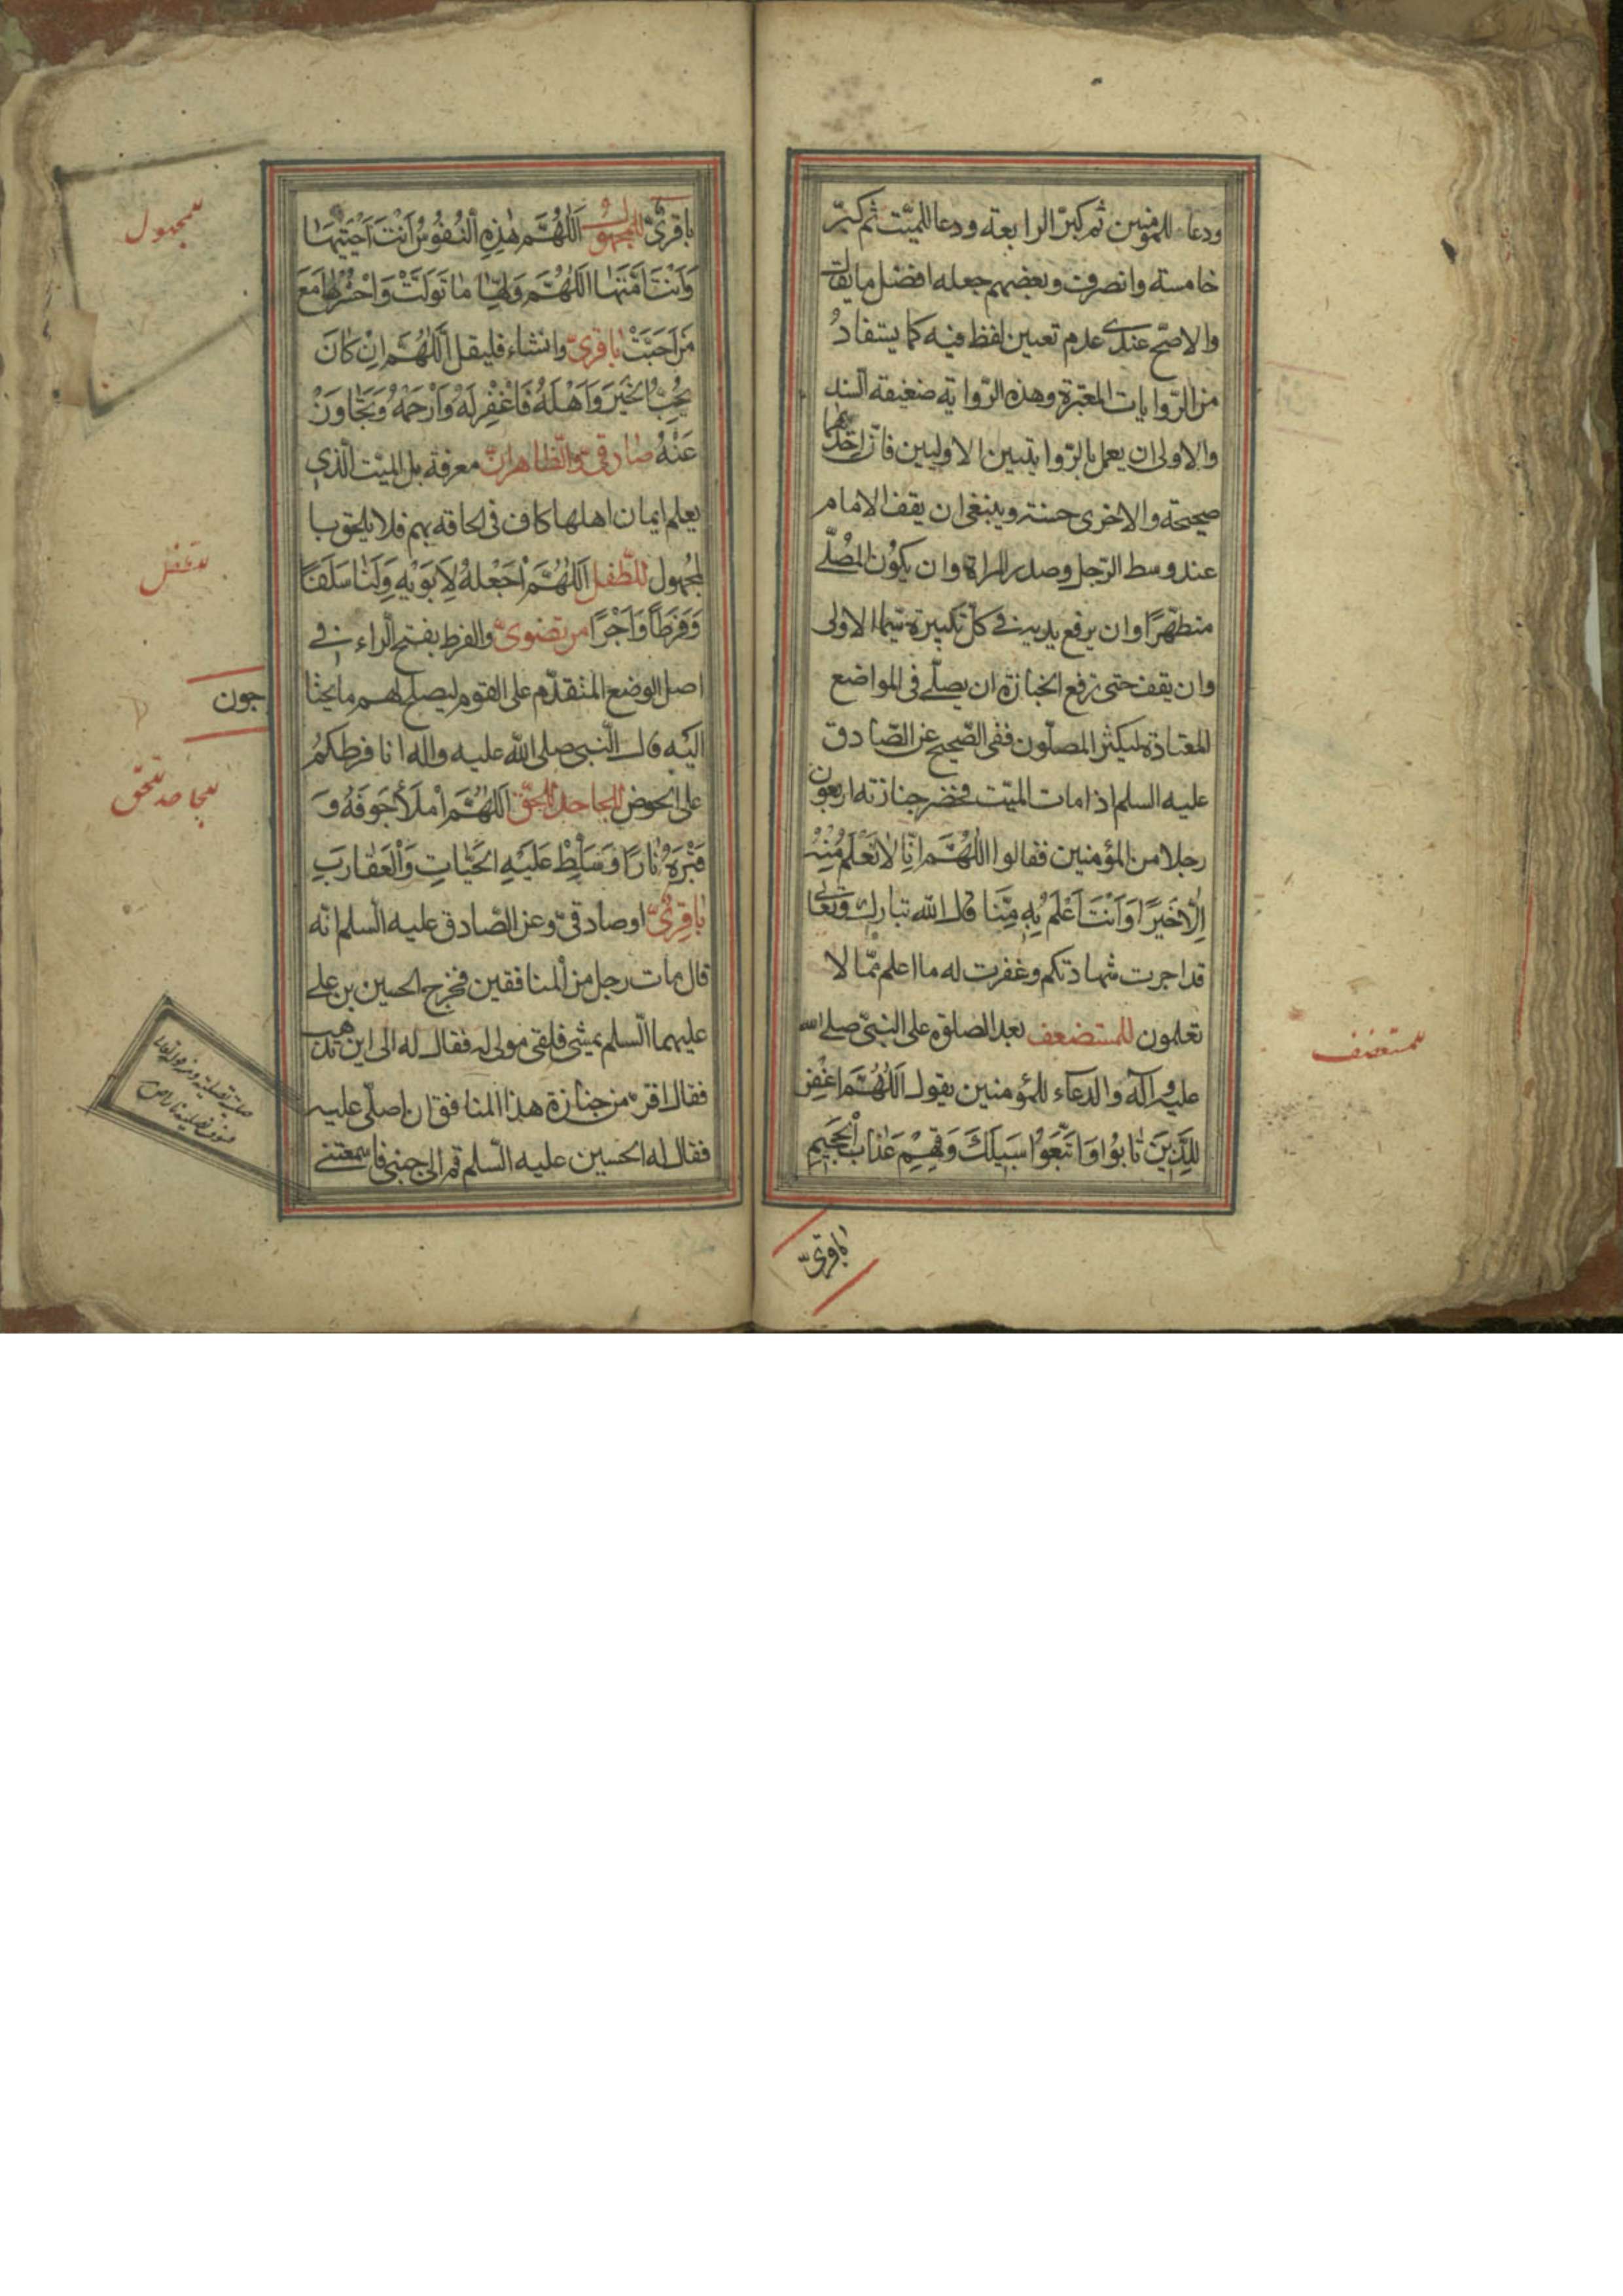 ودعا للمؤمنين ثم كبّر الرابعة ودعا للميّت ثم كبّر
خامسة وانصرف وبعضهم جعله افضل ما يقال
والاصحّ عندى عدم تعيين لفظ فيه كما يستفادُ
من الرّوايات المعتبرة وهذه الرّواية ضعيفة السند
والاولى ان يعمل بالرّوايتين الاوليين فانّ احدٰهما
صحيحة والاخرى حسنة وينبغى ان يقف الامام
عند وسط الرّجل وصدر المراة وان يكوُن المُصلّے
متطهّرًا وان يرفع يديه فے كلّ تكبيرة سيّما الاولى
وان يقف حتى ترفع الجنازة ان يصلّے فى المواضع
المعتادة ليكثر المصلّون ففى الصّحيح عن الصّادق
عليه السلم اذا مات الميّت فحضر جنازته اربعون
رجلا من المؤمنين فقالوا اللّٰهُمَّ اِنّا لا نَعْلَمُ مِنْهُ
اِلّا خَيرًا وَاَنْتَ اَعْلَمُ بِهِ مِنَّا قال الله تبارك وتعالى
قد اجرت شهادتكم وغفرت له ما اعلم ممّا لا
تعلمون للمستضعف بعد الصلوة على النبىّ صلے الله
عليه وآله والدعاء للمؤمنين يقول اَللّٰهُمَّ اغْفِرْ
لِلَّذِينَ تٰابُوُا وَاتَّبَعَوُا سَبيلَكَ وَقِهِمْ عَذٰابَ الْجَحيمِ
باقرىّ
للمستضعف
باقرىّ للمجهول اَللّٰهُمَّ هٰذِهِ النُّفُوسُ اَنْتَ اَحْيَيْتَهٰا
وَاَنْتَ اَمَتَّهٰا اَللّٰهُمَّ وَلِّهٰا مٰا تَوَلَّتْ وَاحْشُرْهٰا مَعَ
مَنْ اَحَبَّتْ باقرىّ وانشاء فليقل اَللّٰهُمَّ اِنْ كٰانَ
يُحِبُّ الْخَيْرَ وَاَهْلَهُ فَاغْفِرْ لَهُ وَارْحَمْهُ وَتَجٰاوَزْ
عَنْهُ صٰادقىّ والظّاهر انّ معرفة بل الميّت الّذى
يعلم ايمان اهلها كاف فى الحاقه بهم فلا يلحق با
لمجهول للطّفل اَللّٰهُمَّ اجْعَلْهُ لِاَبَوَيْهِ وَلَنٰا سَلَفًا
وَفَرَطًا وَاَجْرًا مرتضوىّ والفرط بفتح الراء فے
اصل الوضع المتقدّم على القوم ليصلح لهم ما يحتا
جون
اليه قال النّبى صلى الله عليه واله انا فرطكمُ
على الحوض للجاحد للحقّ اَللّٰهُمَّ امْلَأْ جَوفَهُ وَ
قَبْرَهُ نٰارًا وَسَلِّطْ عَلَيْهِ الحَيّٰاتِ وَالْعَقٰارِبَ
بٰاقِرىّ او صادقىّ وعن الصّادق عليه السلم انّه
قال مات رجل من المنافقين فخرج الحسين بن علے
عليهما السلم يمشى فلقى مولى له فقال له الى اين تذهب
فقال افرّ من جنازة هذا المنافق ان اصلّى عليه
فقال له الحسين عليه السّلم قم الى جنبى فما سمعتنے
للمجهول
للطفل
للجاحد للحقّ